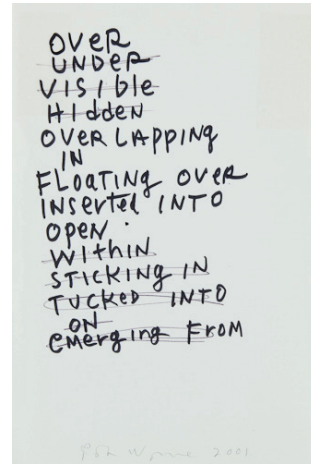 OVER
UNDER
VISIble
HIddeN
OVER LAPPINg
IN
FLOaTINg OVeR
INSerted INTO
OPeN.
WIthIN
STICKINg IN
TUCKeD INTO
ON
emerging FROM
2001